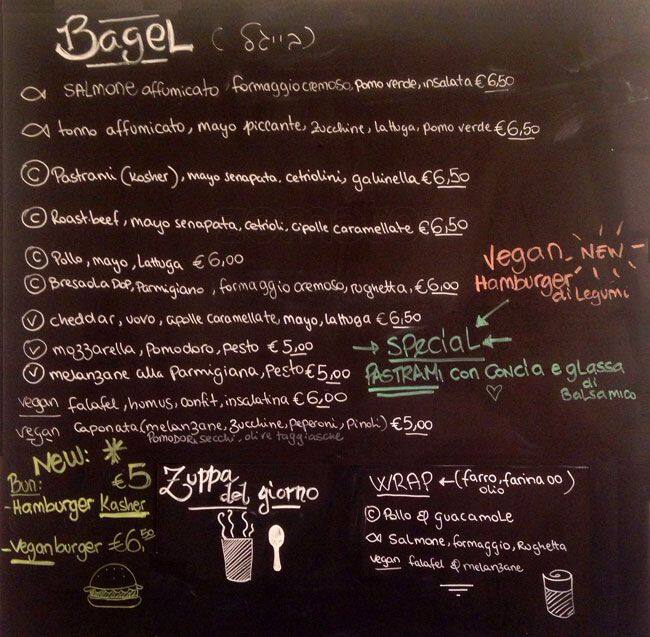 BageL (בייגל)
SALMONE affumicato formaggio cremoso, pomo verde, insalata €6,50
tonno affumicato, mayo piccante, zucchine, lattuga, pomo verde €6,50
C Pastrami (kosher), mayo senapata, cetriolini, galinella €6,50
C Roastbeef, mayo senapata, cetrioli, cipolle caramellate €6,50
C Pollo, mayo, Lattuga €6,00
C Bresaola POP, Parmigiano, formaggio cremoso, rughetta, €6,00
V cheddar, uovo, cipolle caramellate, mayo, lattuga €6,50
V mozzarella, Pomodoro, pesto €5,00
V melanzane alla Parmigiana, Pesto €5,00
vegan falafel, humus, confit, insalatina €6,00
vegan caponata (melanzane, zucchine, peperoni, Pinoli) €5,00
Pomodori secchi, olive taggiasche
vegan NEW
Hamburger
di Legumi
SPeciaL
PASTRAMI con Concia e gLassa
di
Balsamico
NEW:
Bun: €5
-Hamburger Kasher
-Veganburger €6,50
Zuppa
del giorno
WRAP (farro, farina 00)
olio
C Pollo & guacamole
Salmone, formaggio, Rughetta
vegan falafel & melanzane